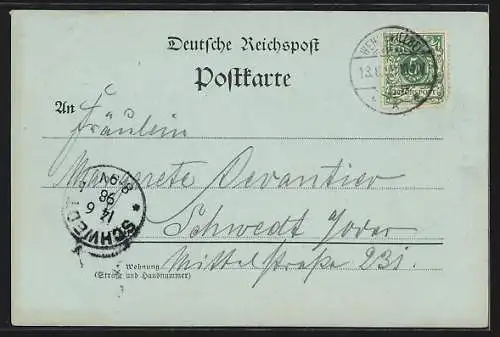 Deutsche Reichspost
Postkarte
An
Fräulein
Margarete Devantier
Schwedt /Oder
Mittelstraße 23 i.
Wohnung
(Straße und Hausnummer)
SCHWEDT
14 6
98
8-9V
5